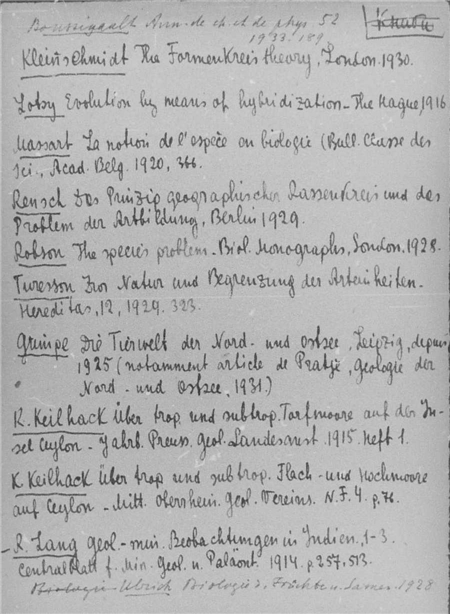 Boussingault Ann. de ch. et de phys 52
1933. 189
Kleinschmidt The Formenkreis theory, London. 1930.
Lotsy Evolution by means of hybridization - The Hague, 1916
Massart La notion de l'espèce en biologie (Bull. Classe des
Sci., Acad. Belg. 1920, 366.
Rensch Das Prinzip geographischer Rassenkreis und das
Problem der Artbildung, Berlin, 1929.
Robson The species problem - Biol. Monographs, London. 1928.
Turesson Zur Natur und Begrenzung der Arteinheiten -
Hereditas, 12, 1929. 323.
Grimpe Die Tierwelt der Nord- und Ostsee, Leipzig, depuis
1925 (notamment article de Pratje, Geologie der
Nord- und Ostsee, 1931.)
K. Keilhack Über trop. und subtrop. Torfmoore auf der In-
sel Ceylon - Jahrb. Preuss. Geol. Landesanst. 1915. Heft 1.
K. Keilhack Über trop und subtrop. Flach- und Hochmoore
auf Ceylon - Mitt. Oberrhein. Geol. Vereins. N.F. 4. p. 76.
- R. Lang Geol-min. Beobachtungen in Indien, 1-3.
Centralblatt f. Min. Geol. u. Paläont. 1914. p. 257, 513.
Ulbrich Biologie d. Früchte u. Samen 1928